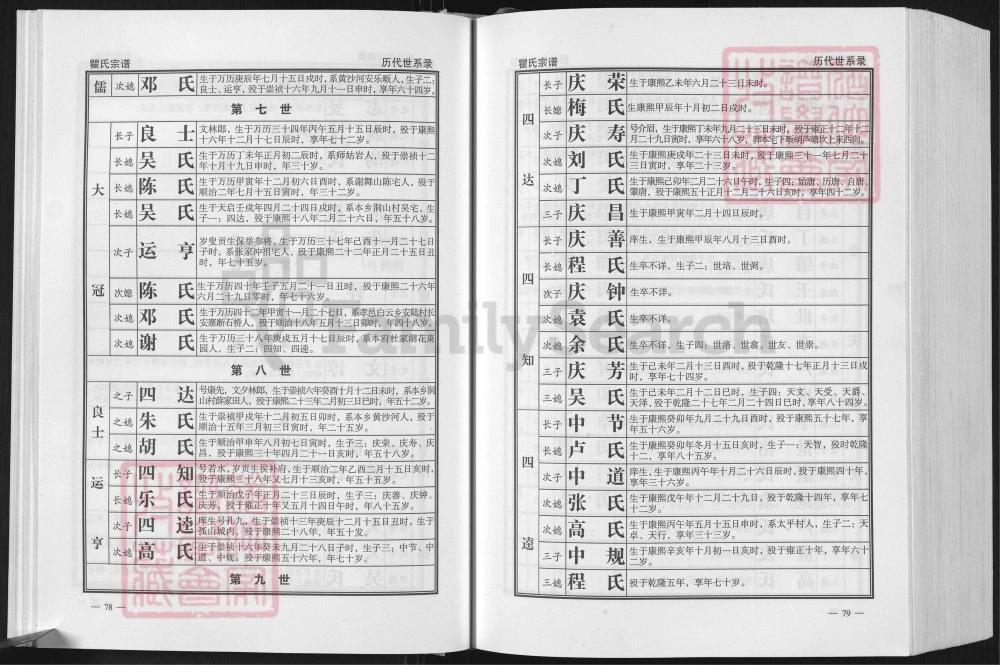 瞿氏宗谱
历代世系录
儒 次媳 邓氏 生于万历庚辰年七月十五日戌时，系黄沙河安乐畈人，生子二：
良士、运亨，殁于崇祯十六年九月十一日申时，享年六十四岁。
第七世
大冠
长子 良士 文林郎，生于万历三十四年丙午五月十五日辰时，殁于康熙
十六年十二月十七日辰时，享年七十二岁。
长媳 吴氏 生于万历丁未年正月初二辰时，系师姑岩人，殁于崇祯十二
年十月十九日申时，年三十岁。
长媳 陈氏 生于万历甲寅年十二月初六日酉时，系谢舞山陈宅人，殁于
顺治二年七月十五日寅时，年三十二岁。
长媳 吴氏 生于天启壬戌年四月二十四日戌时，系本乡洞山村吴宅，生
子一：四达，殁于康熙十八年二月二十六日，年五十八岁。
次子 运亨 岁叟贡生保举参将，生于万历三十七年己酉十一月二十七日
子时，系张家冲祖宅人，殁于康熙二十二年正月二十五日丑
时，年七十五岁。
次媳 陈氏 生于万历四十年壬子五月二十一日丑时，殁于康熙二十六年
六月二十九日零时，年七十六岁。
次媳 邓氏 生于万历四十二年甲寅十一月二十七日，系孝邑白云乡安陆村长
安寨断石桥人，殁于顺治十八年五月十三日寅时，年四十八岁。
次媳 谢氏 生于万历三十八年庚戌五月十七日辰时，系本府杜家湖花菓
园人，生子二：四知、四逵。
第八世
良士
之子 四达 号康先，文夕林郎，生于崇祯六年癸酉十月十二日未时，系本乡洞
山村薛家田人，殁于康熙二十三年二月初三日巳时，年五十二岁。
之媳 朱氏 生于崇祯甲戌年十二月初五日卯时，系本乡黄沙河人，殁于
顺治十五年三月初三日寅时，年二十五岁。
之媳 胡氏 生于顺治甲申年八月初七日寅时，生子三：庆荣、庆寿、庆
昌，殁于康熙三十年四月二十一日亥时，年五十八岁。
运亨
长子 四知 号若水，岁贡生侯补府，生于顺治二年乙酉二月十五日亥时，
殁于康熙三十八年又七月十三亥时，年五十五岁。
长媳 乐氏 生于顺治戊子年正月二十三日辰时，生子三：庆善、庆钟、
庆芳，殁于雍正十年又五月十四日午时，年八十五岁。
次子 四逵 庠生号孔九，生于崇祯十三年庚辰十二月十五日丑时，生于
孤山城内，殁于康熙二十八年，年五十发。
次媳 高氏 生于崇祯十六年癸未九月二十八日子时，生子三：中节、中
道、中规，殁于康熙五十六年，年七十岁。
第九世
— 78 —
瞿氏宗谱
历代世系录
四达
长子 庆荣 生于康熙乙未年六月二十三日未时。
长媳 梅氏 生康熙甲辰年十月初二日戌时。
次子 庆寿 号介眉，生于康熙丁未年九月二十三日未时，殁于雍正十二年十二
月二十九日寅时，享年六十八岁，
次媳 刘氏 生于康熙庚戌年二十三日未时，殁于康熙三十一年七月二十
三日寅时，享年二十三岁。
次媳 丁氏 生于康熙己卯年二月二十六日午时，生子四：始唐、历唐、自唐、
肇唐，殁于康熙五十正月十二月二十六日亥时，享年四十二岁。
三子 庆昌 生于康熙甲寅年二月十四日辰时。
四知
长子 庆善 庠生，生于康熙甲辰年八月十三日酉时。
长媳 程氏 生卒不详，生子二：世培、世弼。
次子 庆钟 生卒不详。
次媳 袁氏 生卒不详。
次媳 余氏 生卒不详，生子四：世浴、世翕、世友、世崇。
三子 庆芳 生于己未年二月十三日酉时，殁于乾隆十七年正月十三日戌
时，享年七十四岁。
三媳 吴氏 生于己未年二月十二日巳时，生子四：天文、天受、天爵、
天泽，殁于乾隆二十七年二月二十四日巳时，享年八十四岁。
四逵
长子 中节 生于康熙癸卯年九月二十九日酉时，殁于康熙五十七年，享
年五十六岁。
长媳 卢氏 生于康熙癸卯年冬月十五日亥时，生子一：天智，殁时乾隆
十二年，享年八十五岁。
次子 中道 庠生，生于康熙丙午年十月二十六日辰时，殁于康熙四十年，
享年三十六岁。
次媳 张氏 生于康熙戊午年十二月二十九日，殁于乾隆十四年，享年七
十二岁。
次媳 高氏 生于康熙丙午年五月十五日申时，系太平村人，生子二：天
卓、天行，享年三十三岁。
三子 中规 生于康熙辛亥年十月初一日亥时，殁于雍正十年，享年六十
二岁。
三媳 程氏 殁于乾隆五年，享年七十岁。
— 79 —
FamilySearch